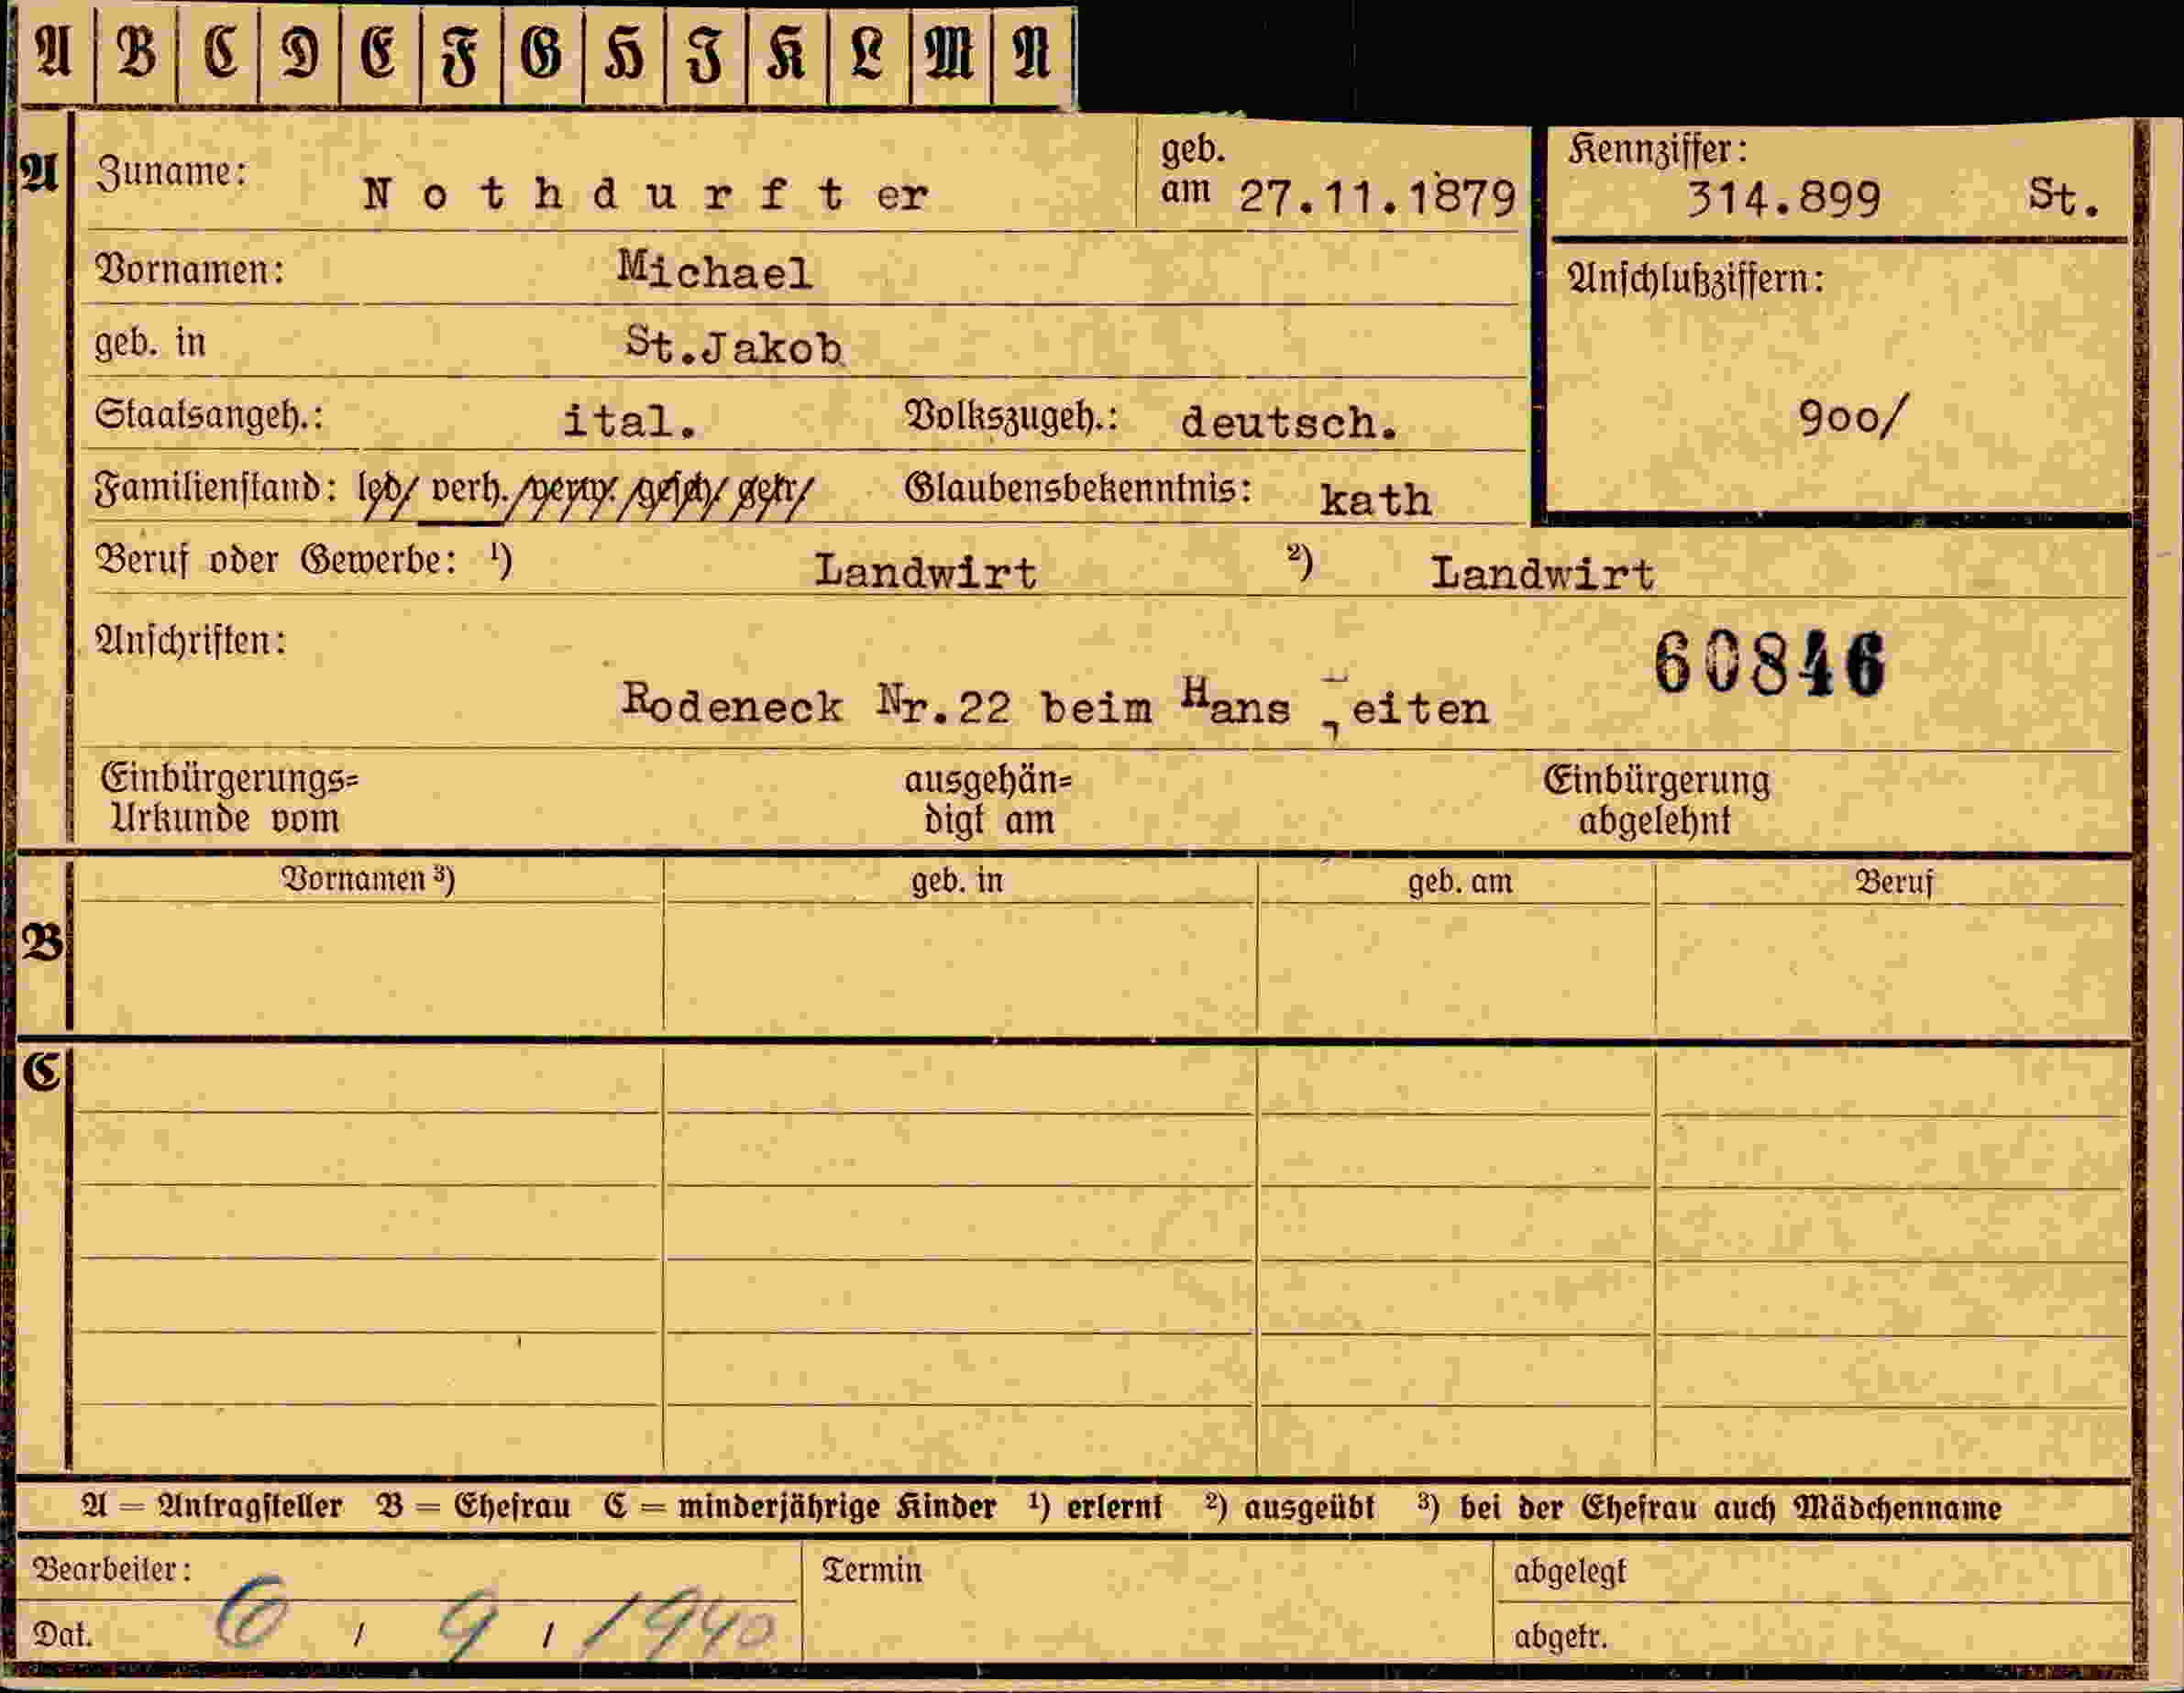 A B C D E F G H J K L M N
A Zuname: Nothdurfter geb. am 27.11.1879
Kennziffer: 314.899 St.
Vornamen: Michael
Anschlußziffern:
900/
geb. in St.Jakob
Staatsangeh.: ital. Volkszugeh.: deutsch.
Familienstand: led/ verh./verw. /gesch/ getr/ Glaubensbekenntnis: kath
Beruf oder Gewerbe: ¹) Landwirt ²) Landwirt
Anschriften:
60846
Rodeneck Nr.22 beim Hans
Einbürgerungs= ausgehän= Einbürgerung
Urkunde vom digt am abgelehnt
B Vornamen ³) geb. in geb. am Beruf
C
A = Antragsteller B = Ehefrau C = minderjährige Kinder ¹) erlernt ²) ausgeübt ³) bei der Ehefrau auch Mädchenname
Bearbeiter: Termin abgelegt
Dat. 6 / 9 / 1940 abgetr.